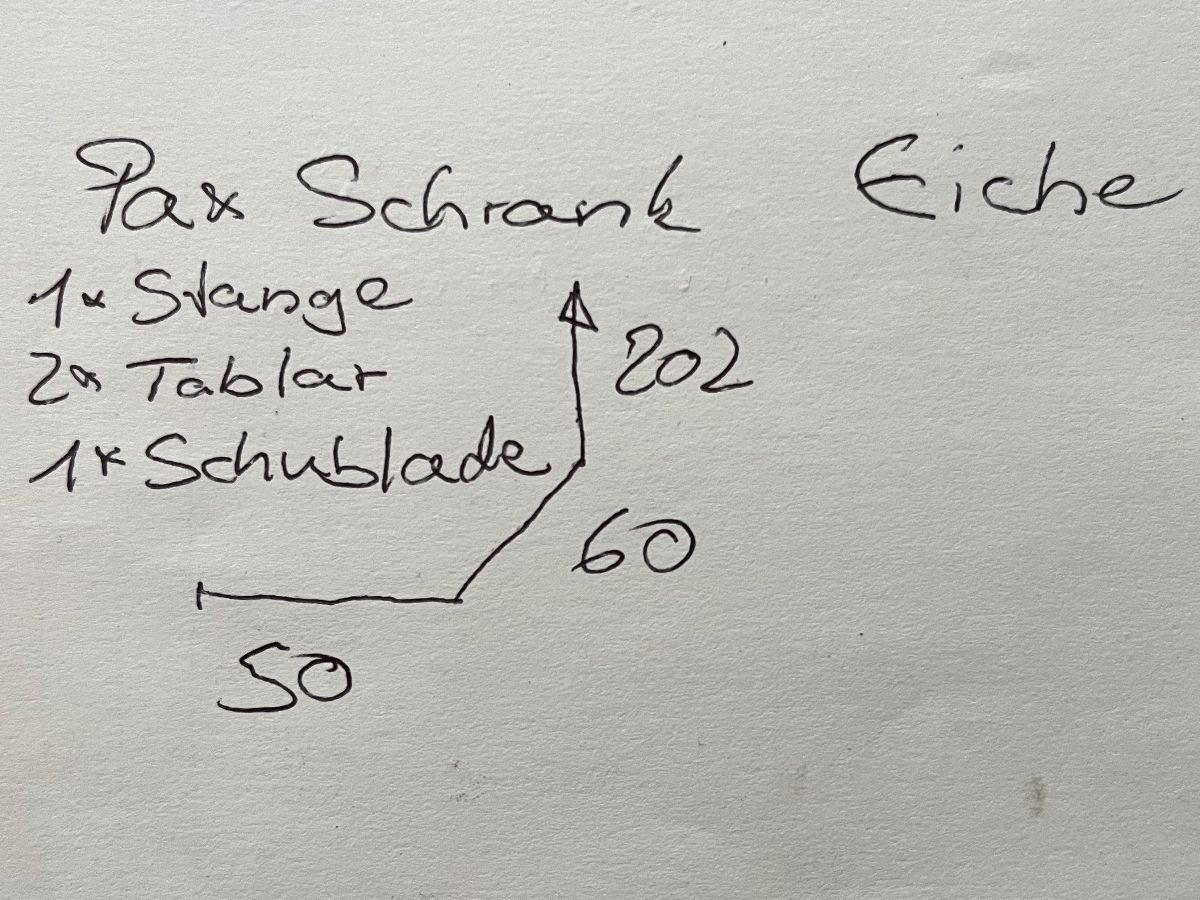 Pax Schrank Eiche
1x Stange
2x Tablar
1x Schublade
202
60
50